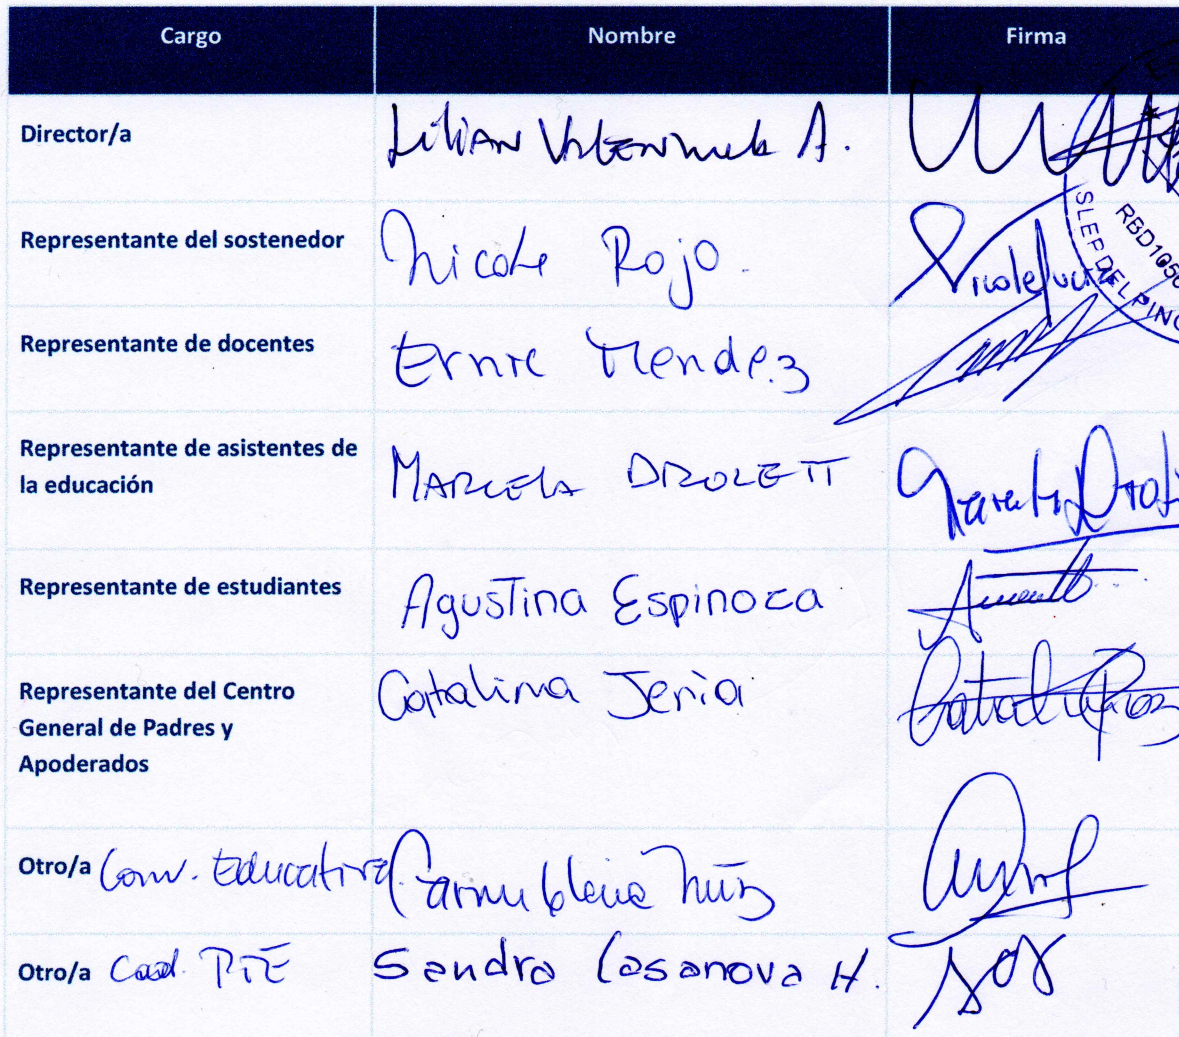 Cargo Nombre Firma
Director/a Lilian Valenzuela A.
Representante del sostenedor Nicole Rojo.
Representante de docentes Ernie Mendez
Representante de asistentes de
la educación MARCELA DROLETT
Representante de estudiantes Agustina Espinoza
Representante del Centro
General de Padres y
Apoderados Catalina Jeria
Otro/a Conv. Educativa
Otro/a Cood. PIE Sandra Casanova H.
SLEP DEL PINO
RBD